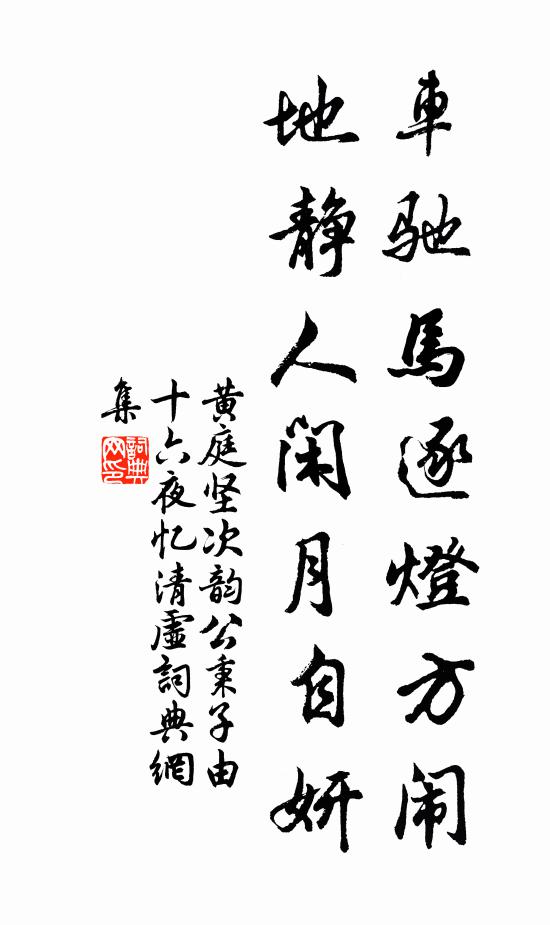 車馳馬逐燈方闹
地静人闲月自妍
黄庭坚次韵公秉子由
十六夜忆清虚詞典網
集
詞典
网印